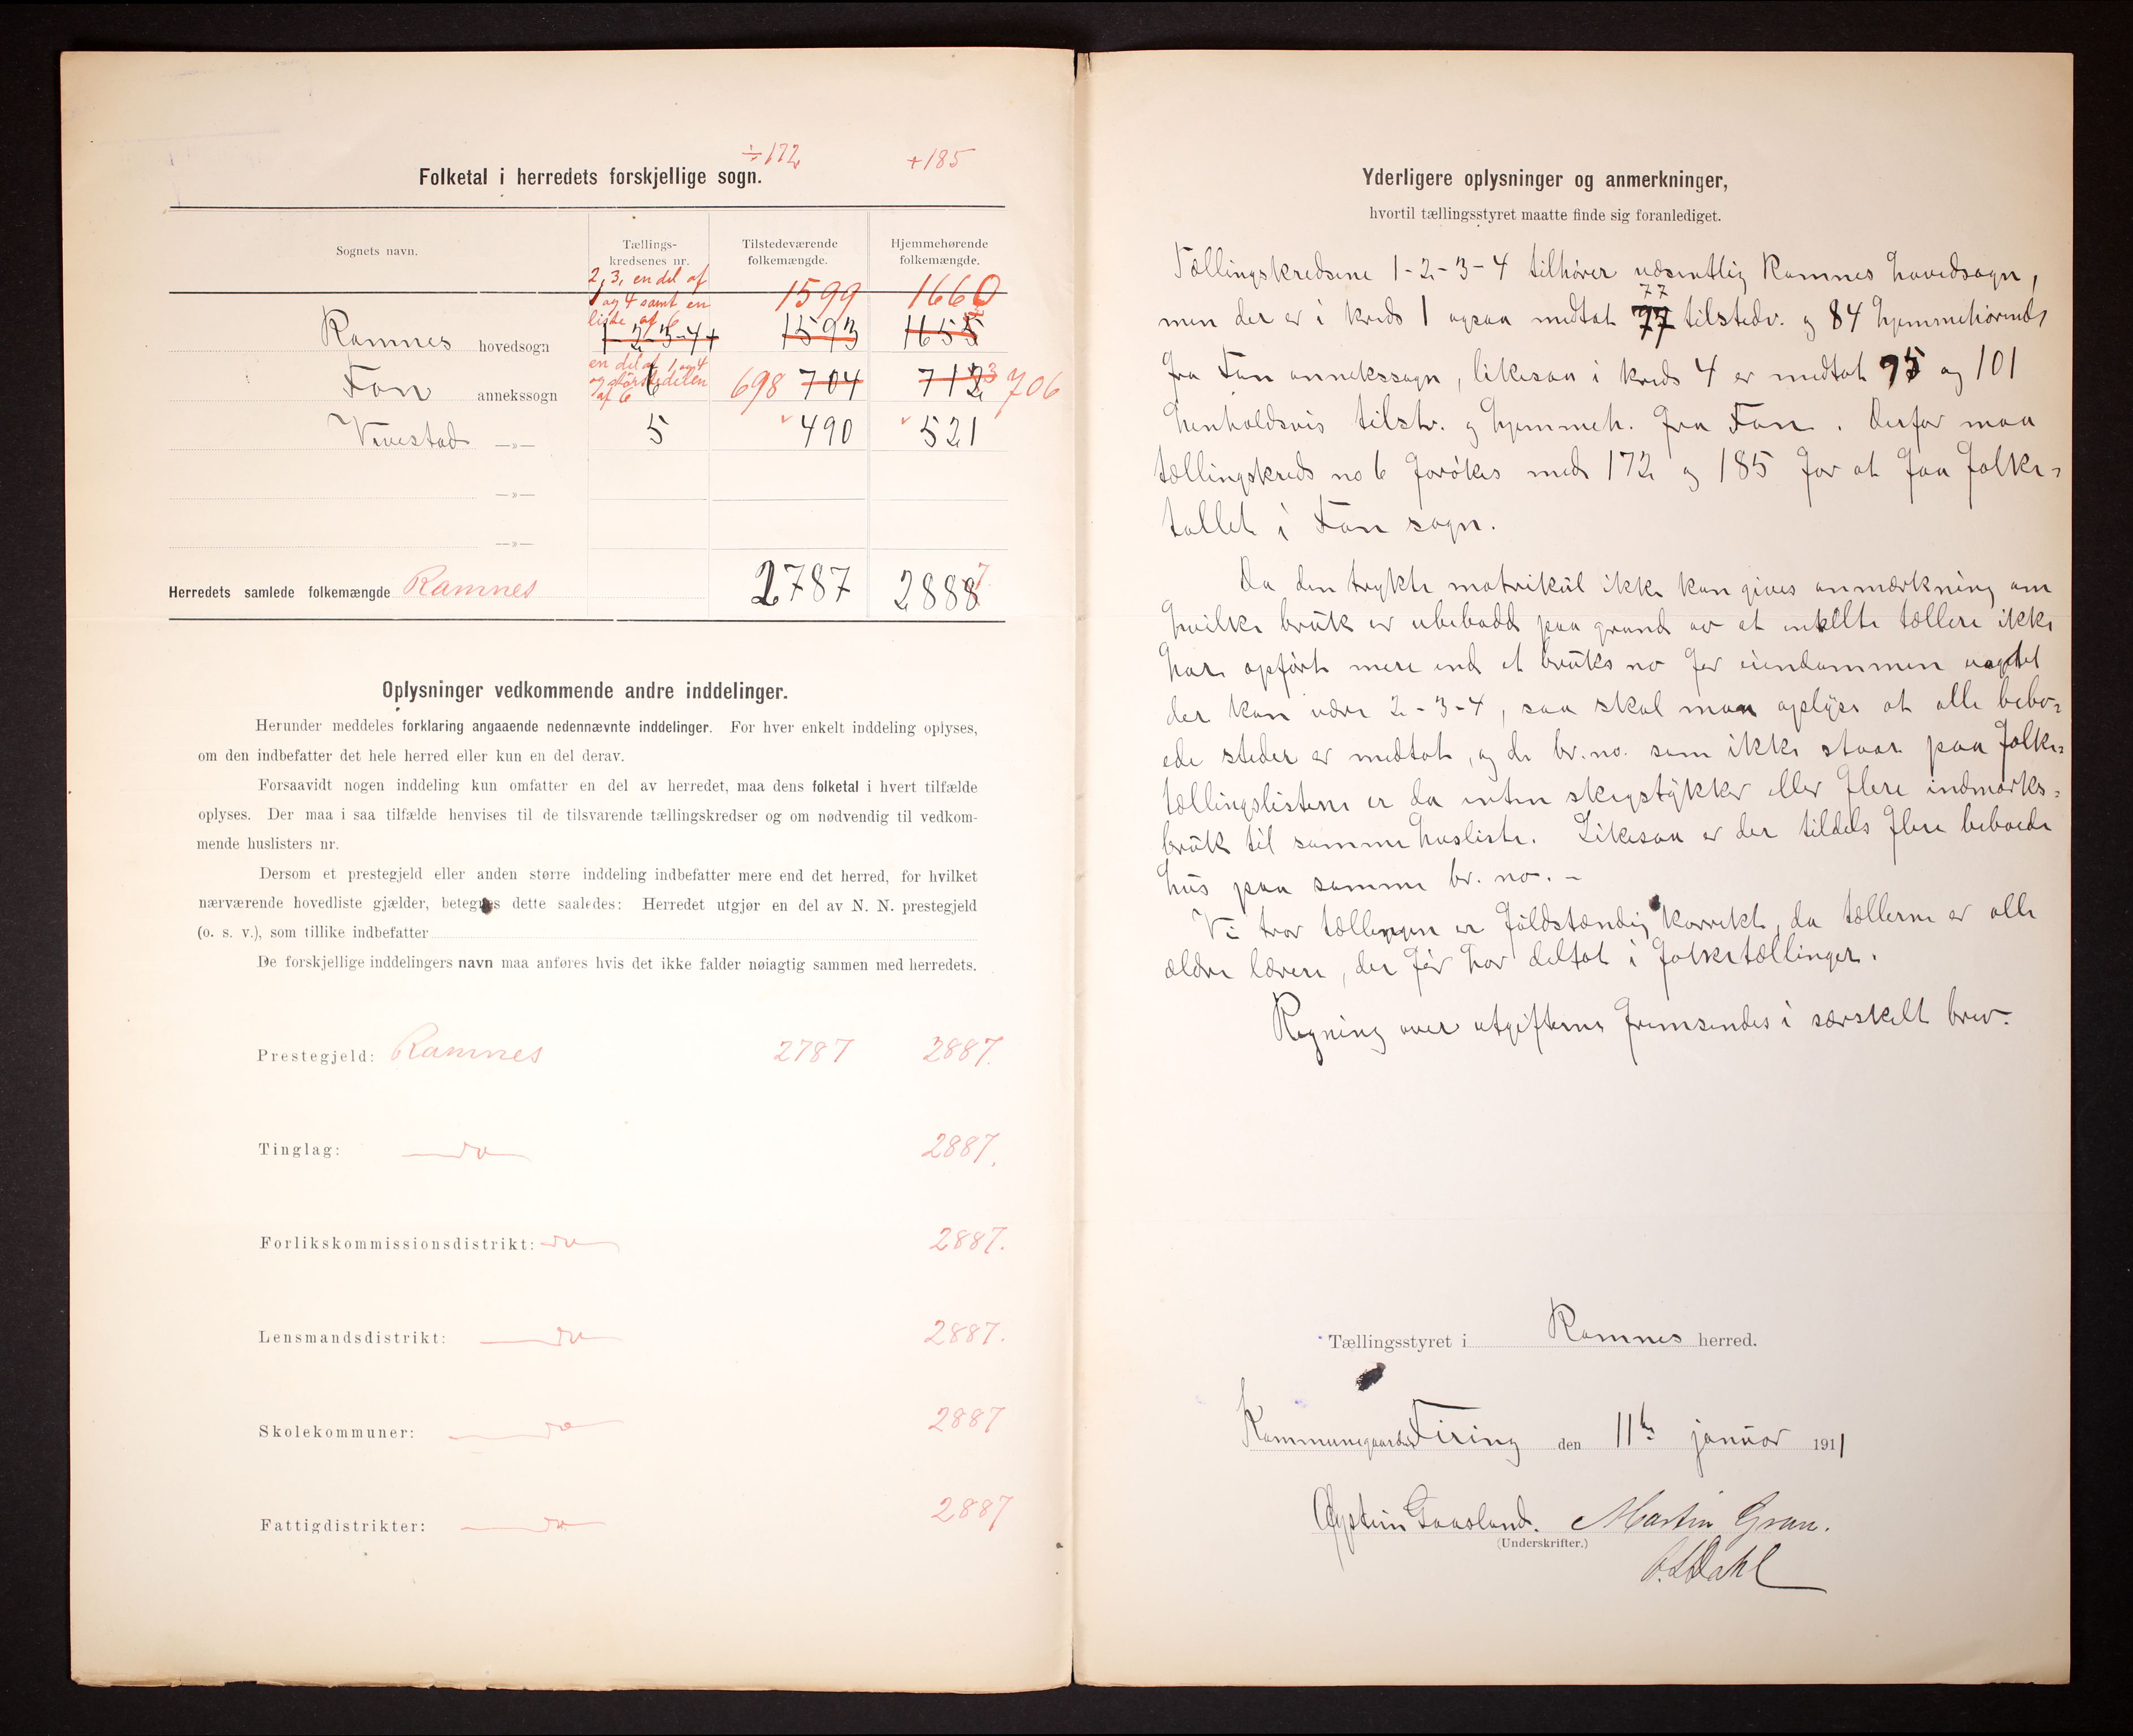 ÷172 +185
Folketal i herredets forskjellige sogn.
Sognets navn. Tællings-kredsenes nr. Tilstedeværende folkemængde. Hjemmehørende folkemængde.
2, 3, en del af
1 og 4 samt en 1599 1660
liste af 6
Ramnes hovedsogn 1-2-3-4 1593 1655
en del af 1, og 4
og størstedelen
af 6
Fon annekssogn 6 698 704 712 3 706
Vivestad —»— 5 490 521
—»—
—»—
Herredets samlede folkemængde Ramnes 2787 2888 7
Oplysninger vedkommende andre inddelinger.
Herunder meddeles forklaring angaaende nedennævnte inddelinger. For hver enkelt inddeling oplyses,
om den indbefatter det hele herred eller kun en del derav.
Forsaavidt nogen inddeling kun omfatter en del av herredet, maa dens folketal i hvert tilfælde
oplyses. Der maa i saa tilfælde henvises til de tilsvarende tællingskredser og om nødvendig til vedkom-
mende huslisters nr.
Dersom et prestegjeld eller anden større inddeling indbefatter mere end det herred, for hvilket
nærværende hovedliste gjælder, betegnes dette saaledes: Herredet utgjør en del av N. N. prestegjeld
(o. s. v.), som tillike indbefatter
De forskjellige inddelingers navn maa anføres hvis det ikke falder nøiagtig sammen med herredets.
Prestegjeld: Ramnes 2787 2887.
Tinglag: —do— 2887.
Forlikskommissionsdistrikt: do 2887.
Lensmandsdistrikt: —do— 2887.
Skolekommuner: —do— 2887
Fattigdistrikter: —do— 2887
Yderligere oplysninger og anmerkninger,
hvortil tællingsstyret maatte finde sig foranlediget.
Tællingskredsene 1-2-3-4 tilhører væsentlig Ramnes hovedsogn,
77
men der er i kreds 1 ogsaa medtat 77 tilstedv. og 84 hjemmehørende
fra Fon annekssogn, likesaa i kreds 4 er medtat 95 og 101
henholdsvis tilstv. og hjemmeh. fra Fon. Derfor maa
tællingskreds no 6 forøkes med 172 og 185 for at faa folke-
tallet i Fon sogn.
Da den trykte matrikul ikke kan gives anmærkning om
hvilke bruk er ubebodd paa grund av at enkelte tællere ikke
har opført mere end et bruks no for eiendommen uagtet
der kan være 2-3-4, saa skal man oplyse at alle bebo-
ede steder er medtat, og de br. no. som ikke staar paa folke-
tællingslisterne er da enten skogstykker eller flere indmarks-
bruk til samme husliste. Likesaa er der tildels flere beboede
hus paa samme br. no. -
Vi tror tællingen er fuldstændig korrekt, da tællerne er alle
ældre lærere, der før har deltat i folketællinger.
Regning over utgifterne fremsendes i særskilt brev.
Tællingsstyret i Ramnes herred.
Kommunegaarden Firing den 11te januar 1911
Øystein Gaasland. Martin Gran.
(Underskrifter.)
Dahl